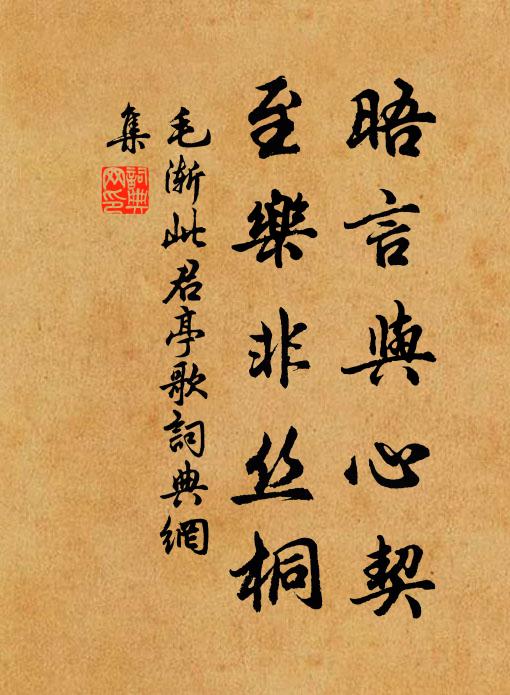 晤言與心契
至樂非丝桐
毛漸此君亭歌詞典網
集
詞典
网印